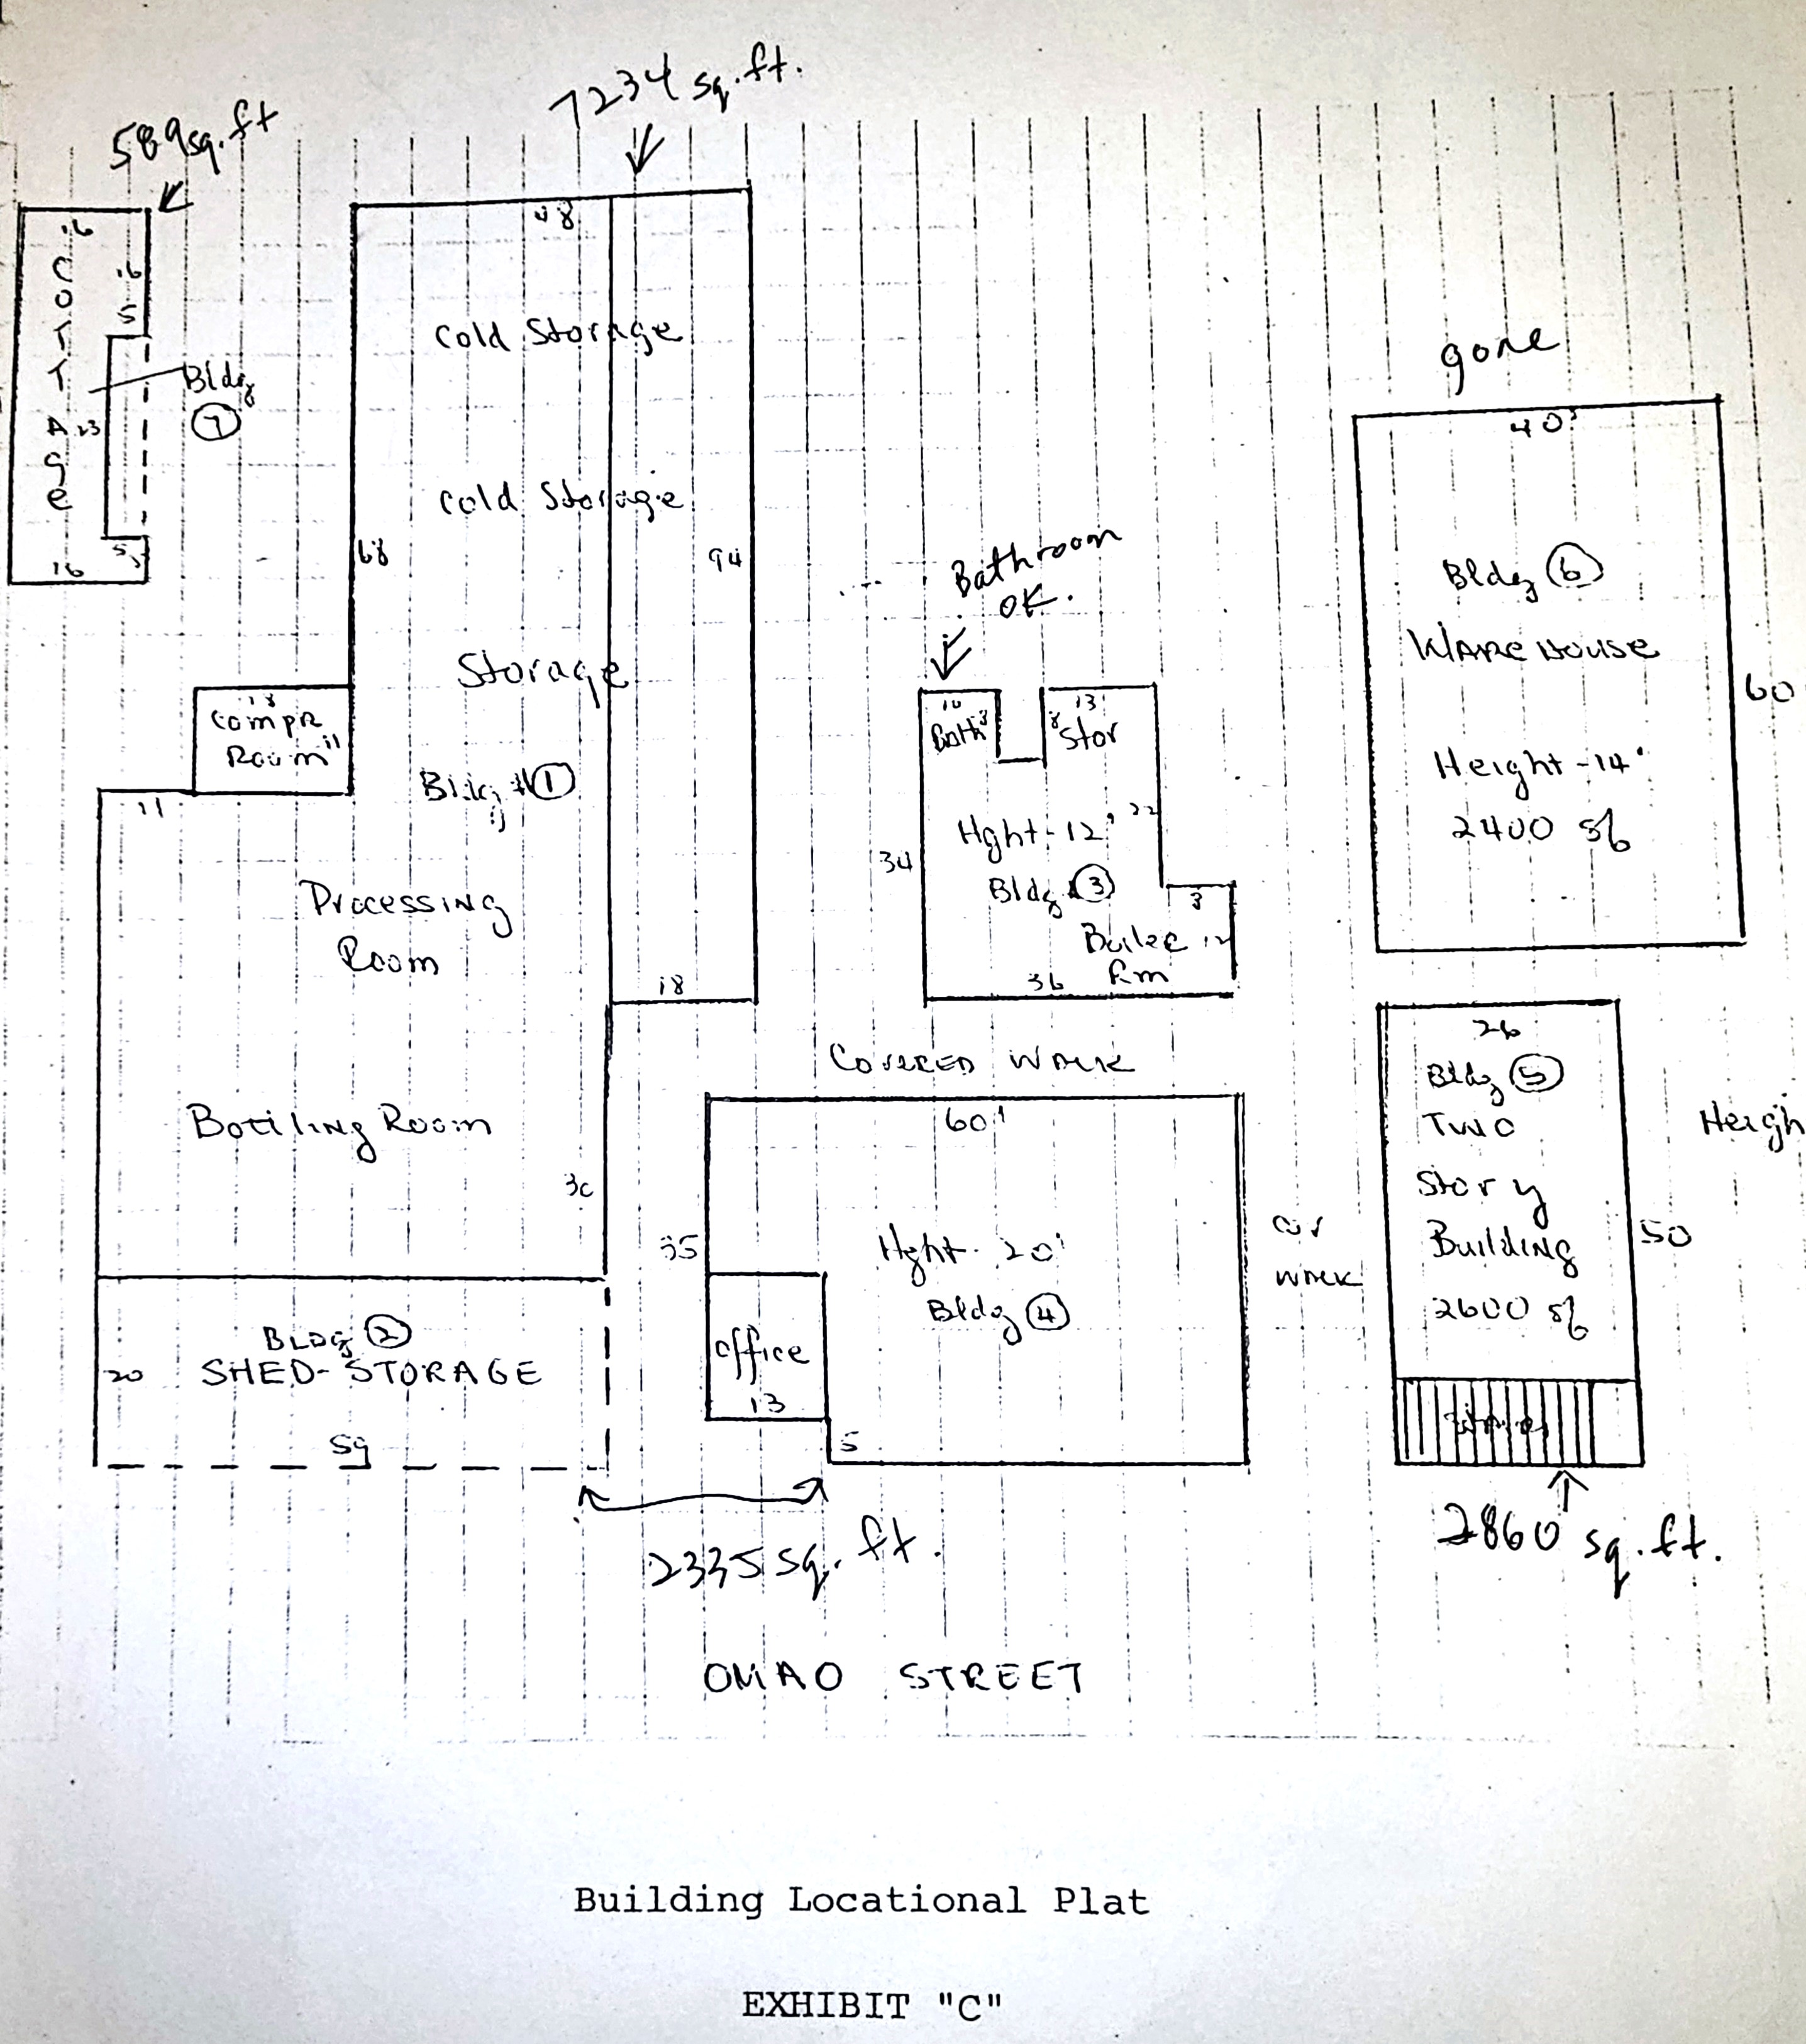 7234 sq.ft.
589 sq.ft
48
16
COTTAGE
16
5
23
5
16
Bldg
7
Cold Storage
Cold Storage
68
94
Storage
Compr
Room
11
11
Bldg #1
Processing
Room
18
Bottling Room
30
Bldg 2
SHED-STORAGE
20
59
Bathroom
OK.
10
Bath
8
13'
8
Stor
Hght-12'
22
34
Bldg 3
8
Boiler
Rm
12
36
COVERED WALK
60'
35
Hght. 20'
Bldg 4
Office
13
5
2335 sq. ft.
cov
WALK
gone
40'
Bldg 6
WAREHOUSE
60
Height-14'
2400 sf
26
Bldg 5
TWO
Story
Building
2600 sf
50
Heigh
2860 sq.ft.
OMAO STREET
Building Locational Plat
EXHIBIT "C"